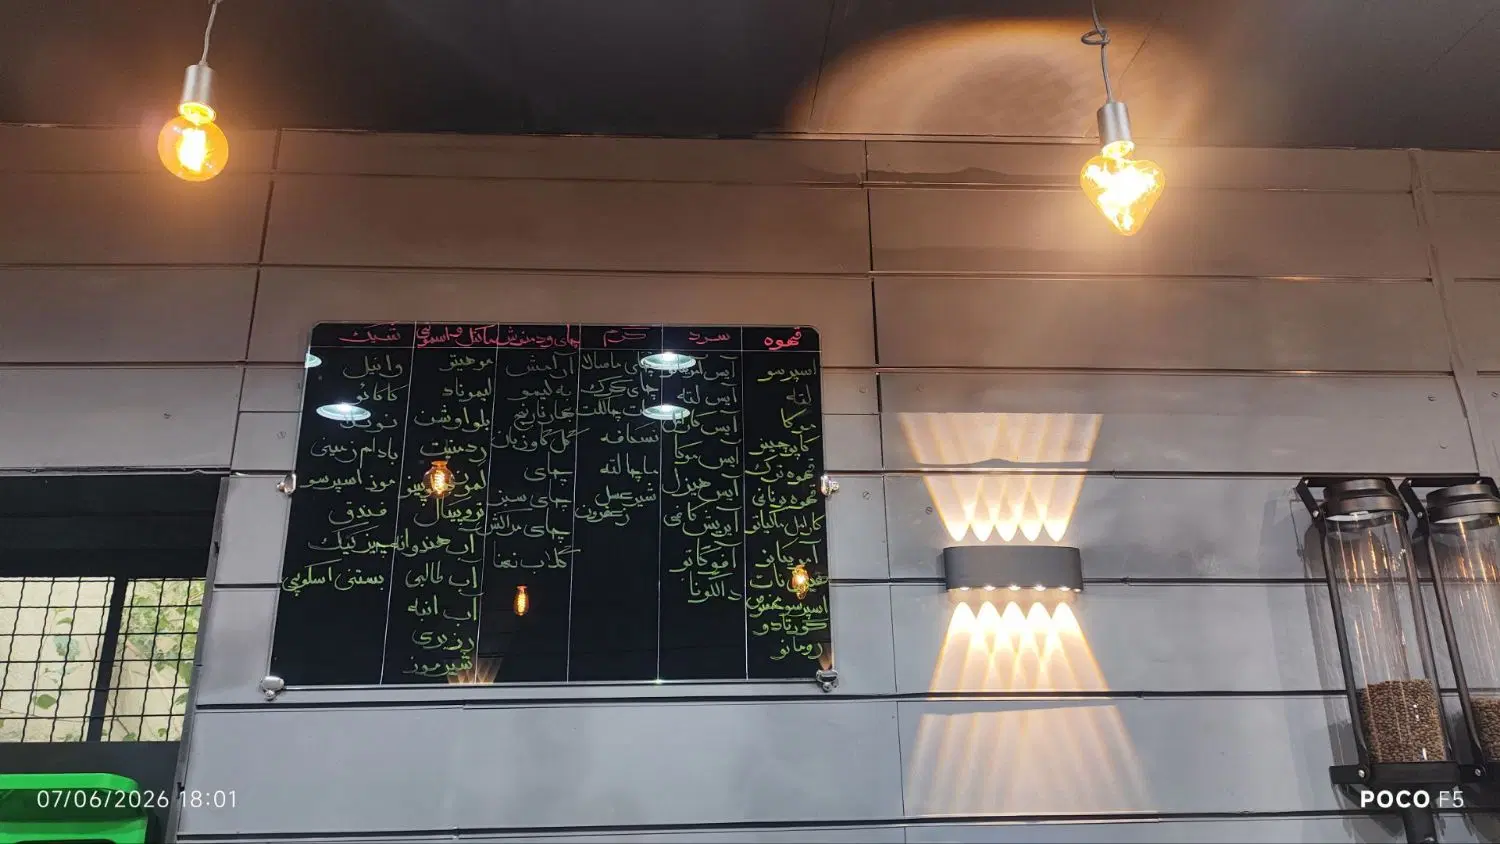 قهوه
اسپرسو
لته
موکا
کاپوچینو
قهوه ترک
قهوه یونانی
کارامل ماکیاتو
آمریکانو
نات
اسپرسو مخصوص
کورتادو
رومانو
سرد
آیس آمریکانو
آیس لته
آیس کارامل
آیس موکا
آیس هیزل
آیریش کافی
آفوگاتو
دالگونا
گرم
چای ماسالا
چای کرک
هات چاکلت
نسکافه
ماچا لته
شیر عسل
زعفرون
چای و دمنوش
آرامش
به لیمو
بهار نارنج
گل گاو زبان
چای
چای سبز
چای مراکشی
گلاب نعنا
ماکتل و اسموتی
موهیتو
لیموناد
بلو اوشن
ردمینت
تروپیکال
آب هندوانه
آب طالبی
آب انبه
رزبری
شیر موز
شیک
وانیل
کاکائو
نوتلا
بادام زمینی
موز اسپرسو
فندق
چیزکیک
بستنی اسکوپی
07/06/2026 18:01
POCO F5